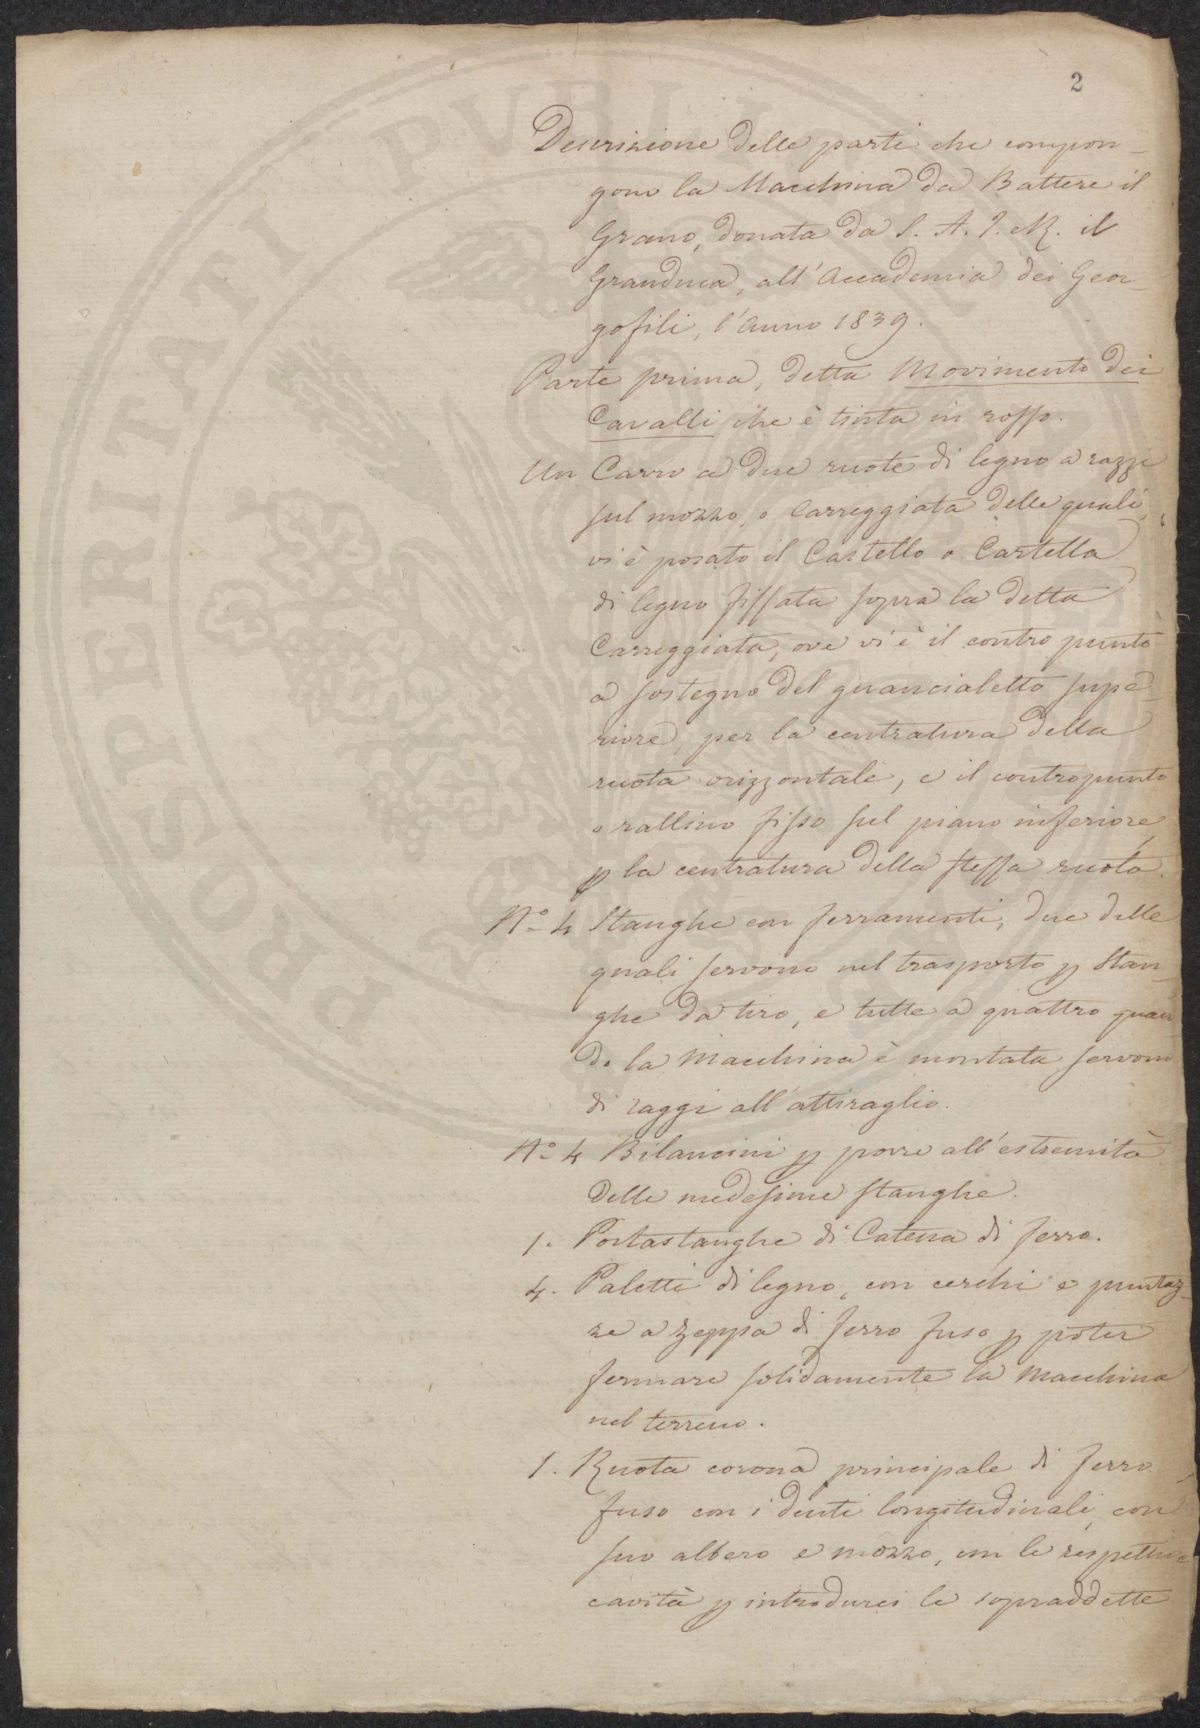 2
Descrizione delle parti che compon-
gono la Macchina da Battere il
Grano, donata da S. A. I. e R. il
Granduca, all'Accademia dei Geor-
gofili, l'anno 1839.
Parte prima, detta Movimento dei
Cavalli che è tinta in rosso.
Un Carro a due ruote di legno a razzi
sul mozzo, o Carreggiata delle quali,
vi è posato il Castello o Cartella
di legno fissata sopra la detta
Carreggiata, ove vi è il contro punto
a sostegno del guancialetto supe-
riore, per la centratura della
ruota orizzontale, e il contropunto
o rallino fisso sul piano inferiore,
p la centratura della stessa ruota.
N.º 4 Stanghe con ferramenti, due delle
quali servono nel trasporto p Stan-
ghe da tiro, e tutte a quattro quan
do la Macchina è montata servono
di raggi all'attiraglio.
N.º 4 Bilancini p porre all'estremità
delle medesime stanghe.
1. Portastanghe di Catena di ferro.
4. Paletti di legno, con cerchi e puntaz-
ze a zeppa di ferro fuso p poter
fermare solidamente la Macchina
nel terreno.
1. Ruota corona principale di ferro
fuso con i denti longitudinali, con
suo albero e mozzo, con le respettive
cavità p introdurci le sopraddette
PROSPERITATI PVBLI